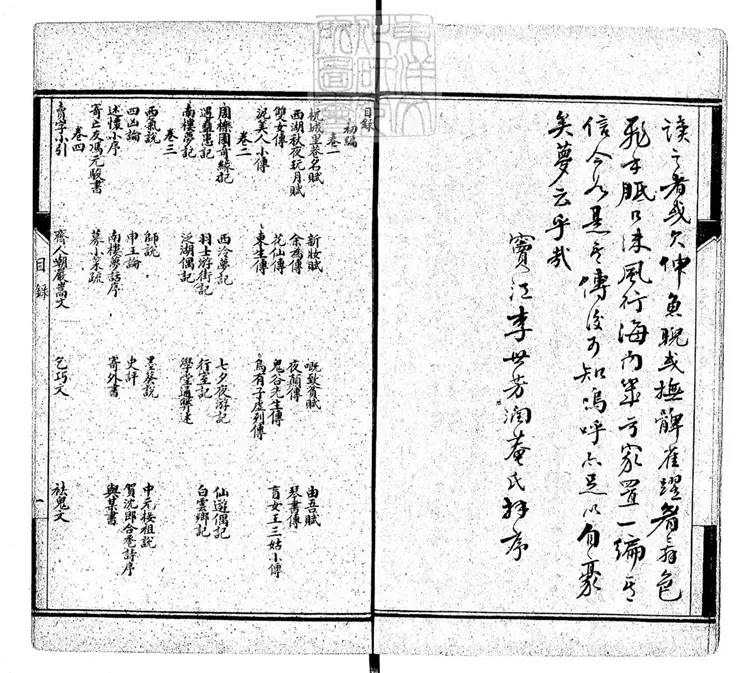 讀之者或欠伸魚睨或撫髀雀躍眉色
飛口沫風行海內幾于家置一編其
信今如是其傳後可知嗚呼亦足以自豪
矣夢云乎哉
寶江李世芳潤菴氏拜序
目錄
初編
卷一
杭城里巷名賦 新妝賦 嘅致貧賦 由吾賦
西湖秋夜玩月賦 余為傳 夜蘭傳 琴書傳
雙女傳 花仙傳 鬼谷先生傳 盲女王三姑小傳
沈美人小傳 東生傳 烏有子虛列傳
卷二
周櫟園奇緣記 西泠夢記 七夕夜游記 仙遊偶記
遇蟲患記 羽士游街記 行室記 白雲鄉記
南樓夢記 泛湖偶記 學堂通弊述
卷三
西氣說 師說 墨葵說 中元接祖說
四凶論 申工論 史評 賀沈郎合巹詩序
述懷小序 南樓夢話序 寄外書 與某書
寄亡友馮元駿書 募小柴疏
卷四
賣字小引 齊人嘲嚴嵩文 乞巧文 祛鬼文
目錄 一